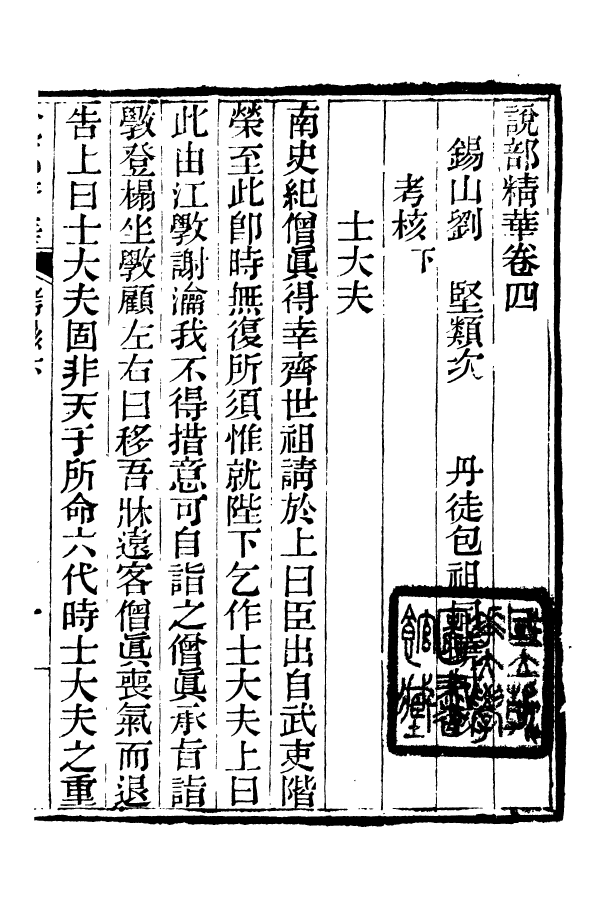 說部精華卷四
錫山劉　堅類次　丹徒包祖
考核下
士大夫
南史紀僧眞得幸齊世祖請於上曰臣出自武吏階
榮至此卽時無復所須惟就陛下乞作士大夫上曰
此由江斆謝瀹我不得措意可自詣之僧眞承旨詣
斆登榻坐斆顧左右曰移吾牀遠客僧眞喪氣而退
告上曰士大夫固非天子所命六代時士大夫之重